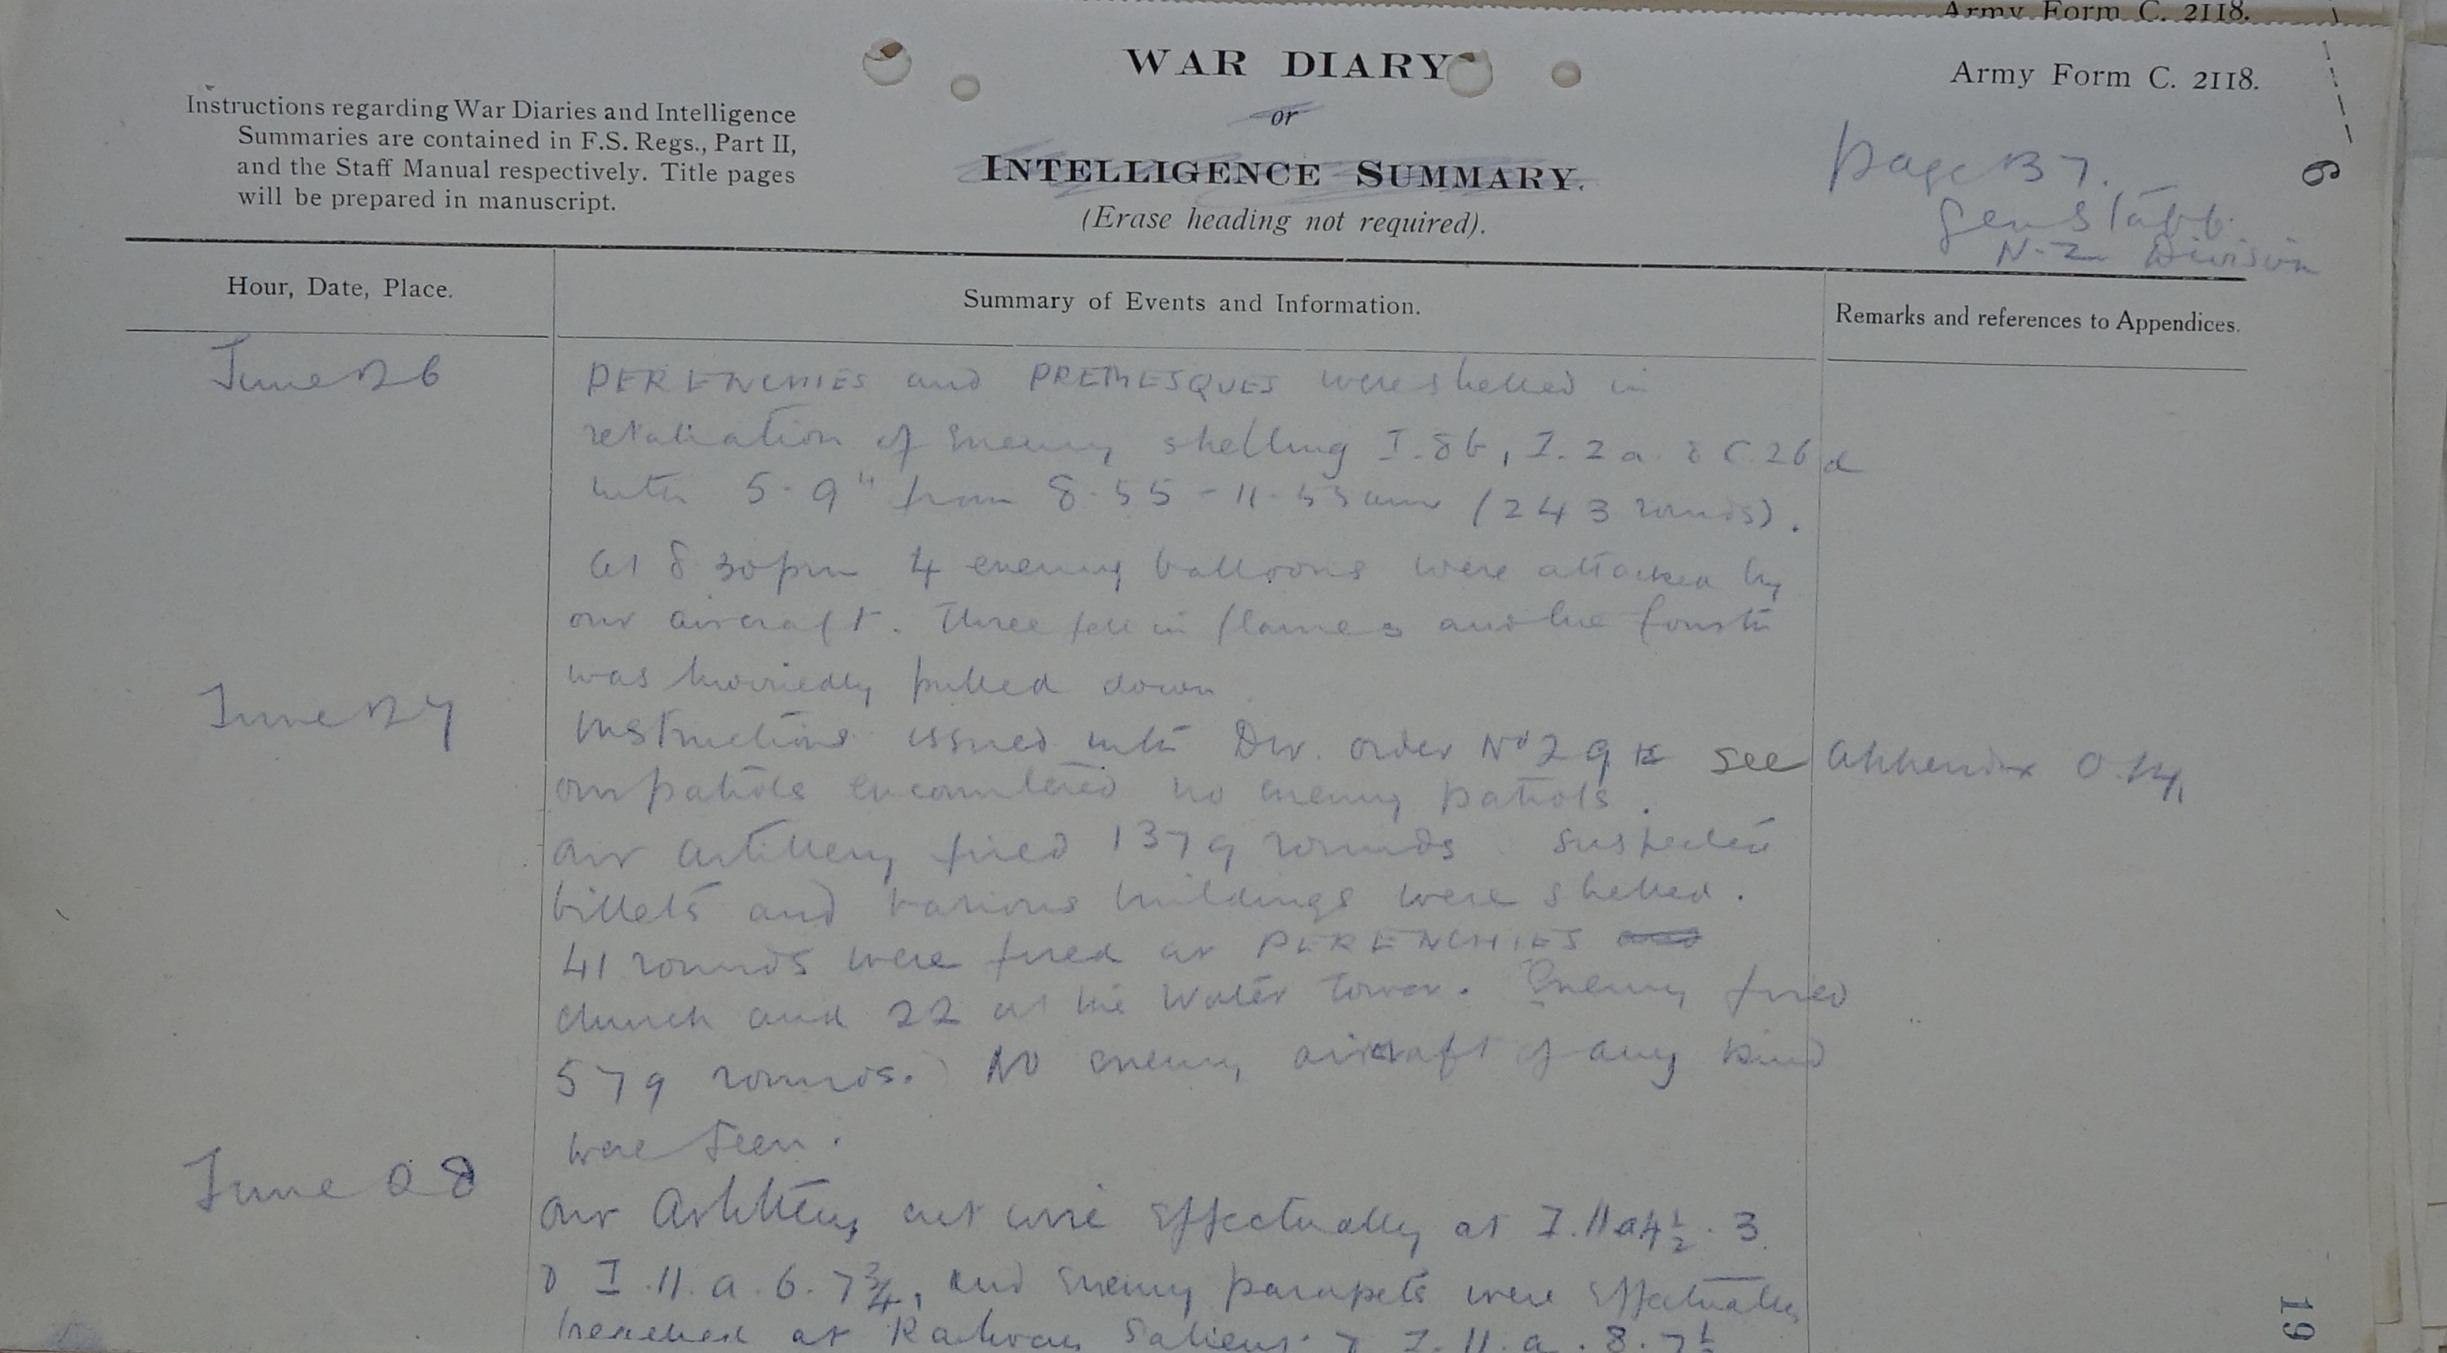 Army Form C. 2118.
WAR DIARY
or
INTELLIGENCE SUMMARY.
(Erase heading not required).
Instructions regarding War Diaries and Intelligence
Summaries are contained in F.S. Regs., Part II,
and the Staff Manual respectively. Title pages
will be prepared in manuscript.
Army Form C. 2118.
page 37.
Gen Staff.
N.Z. Division
6
Hour, Date, Place.
Summary of Events and Information.
Remarks and references to Appendices.
June 26
PERENCHIES and PREMESQUES were shelled in
retaliation of Enemy shelling I.8b, I.2a. & C.26d
with 5.9" from 8.55 - 11.55am (243 rounds).
At 8.30pm 4 enemy balloons were attacked by
our aircraft. Three fell in flames and the fourth
was hurriedly pulled down
June 27
Instructions issued with Div. order No 29 see Appendix
Our patrols encountered no enemy patrols.
Our artillery fired 1379 rounds. Suspected
billets and various buildings were shelled.
41 rounds were fired at PERENCHIES
church and 22 at the Water tower. Enemy fired
579 rounds. No enemy aircraft of any kind
were seen.
June 28
Our Artillery cut wire effectually at I.11a4½.3
& I.11.a.6.7¾, and Enemy parapets were effectually
breached at Railway Salient & I.11.a.8.7½
19